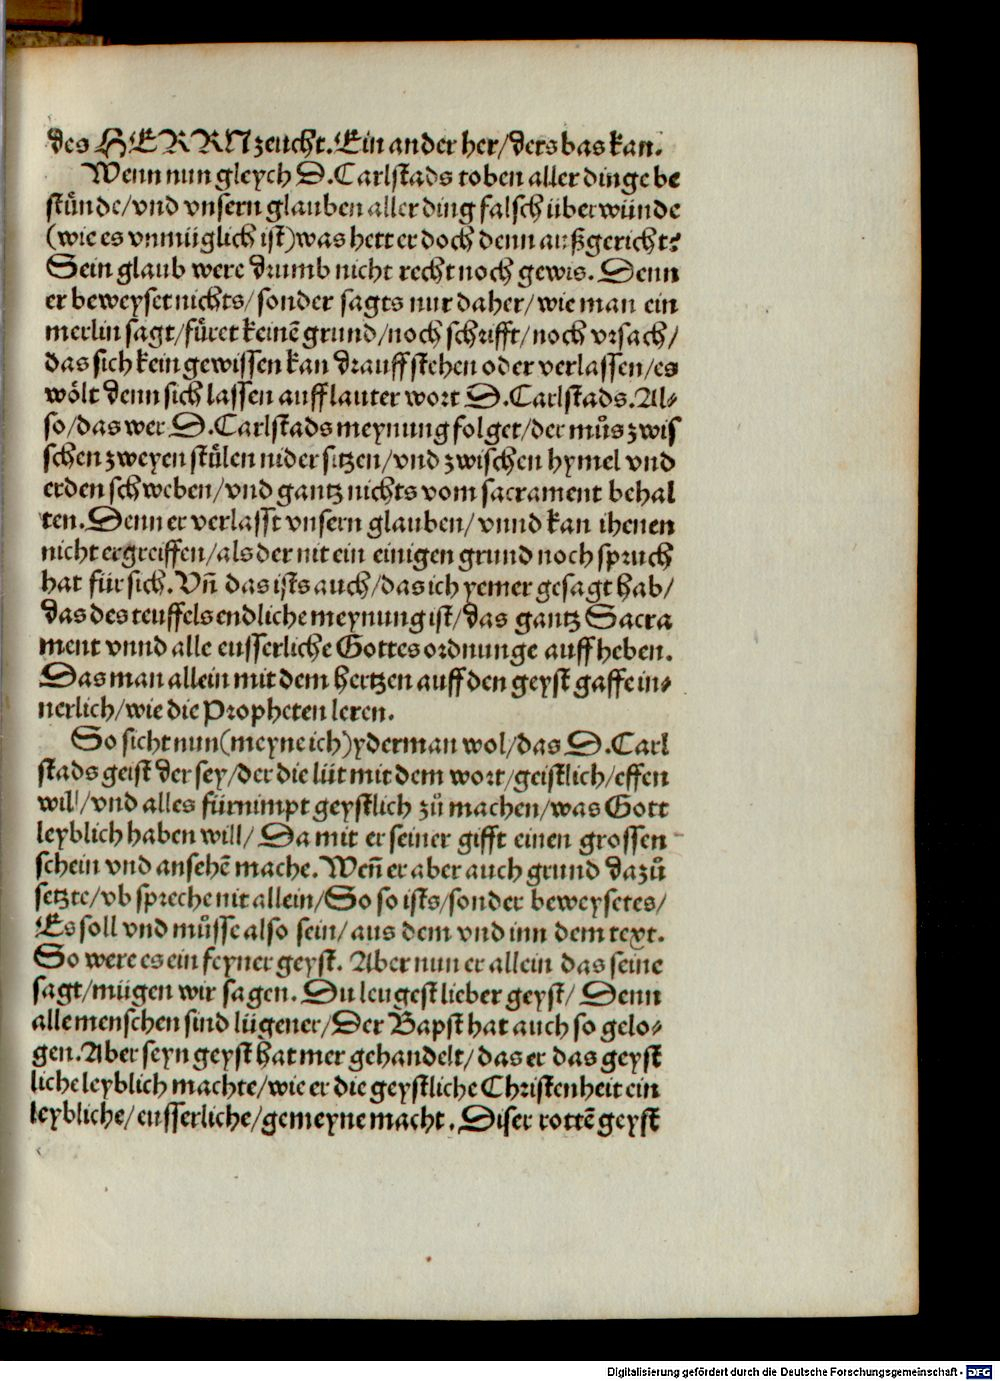 des HERRN zeucht. Ein ander her/ ders bas kan.
Wenn nun gleych D. Carlstads toben aller dinge be
stünde/ vnd vnsern glauben aller ding falsch überwünde
(wie es vnmüglich ist) was hett er doch denn außgericht?
Sein glaub were drumb nicht recht noch gewis. Denn
er beweyset nichts/ sonder sagts nur daher/ wie man ein
merlin sagt/ füret keinē grund/ noch schrifft/ noch vrsach/
das sich kein gewissen kan drauff stehen oder verlassen/ es
wölt denn sich lassen auff lauter wort D. Carlstads. Al⸗
so/ das wer D. Carlstads meynung folget/ der můs zwis
schen zweyen stůlen nider sitzen/ vnd zwischen hymel vnd
erden schweben/ vnd gantz nichts vom sacrament behal
ten. Denn er verlasst vnsern glauben/ vnnd kan ihenen
nicht ergreiffen/ als der nit ein einigen grund noch spruch
hat für sich. Vñ das ists auch/ das ich yemer gesagt hab/
das des teuffels endliche meynung ist/ das gantz Sacra
ment vnnd alle eusserliche Gottes ordnunge auff heben.
Das man allein mit dem hertzen auff den geyst gaffe in⸗
nerlich/ wie die Propheten leren.
So sicht nun (meyne ich) yderman wol/ das D. Carl
stads geist der sey/ der die lüt mit dem wort/ geistlich/ effen
will/ vnd alles fürnimpt geystlich zů machen/ was Gott
leyblich haben will/ Da mit er seiner gifft einen grossen
schein vnd ansehē mache. Weñ er aber auch grund dazů
setzte/ vb spreche nit allein/ So so ists/ sonder beweysetes/
Es soll vnd můsse also sein/ aus dem vnd inn dem text.
So were es ein feyner geyst. Aber nun er allein das seine
sagt/ mügen wir sagen. Du leugest lieber geyst/ Denn
alle menschen sind lügener/ Der Bapst hat auch so gelo⸗
gen. Aber seyn geyst hat mer gehandelt/ das er das geyst
liche leyblich machte/ wie er die geystliche Christenheit ein
leybliche/ eusserliche/ gemeyne macht. Diser rottē geyst
Digitalisierung gefördert durch die Deutsche Forschungsgemeinschaft - DFG